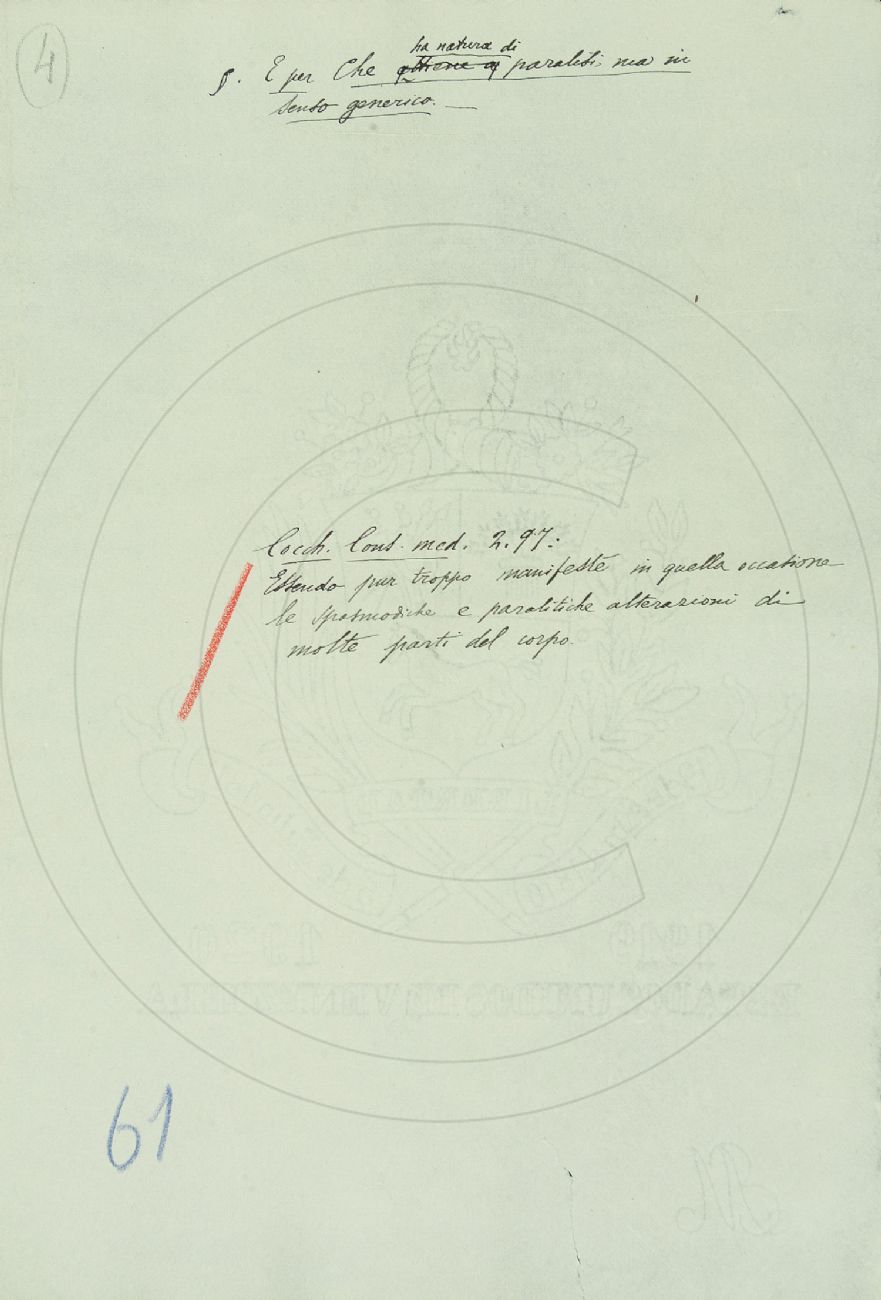 4
§. E per Che ha natura di paralisi, ma in
senso generico. —
Cocch. Cons. med. 2. 97:
Essendo pur troppo manifeste in quella occasione
le spasmodiche e paralitiche alterazioni di
molte parti del corpo.
61